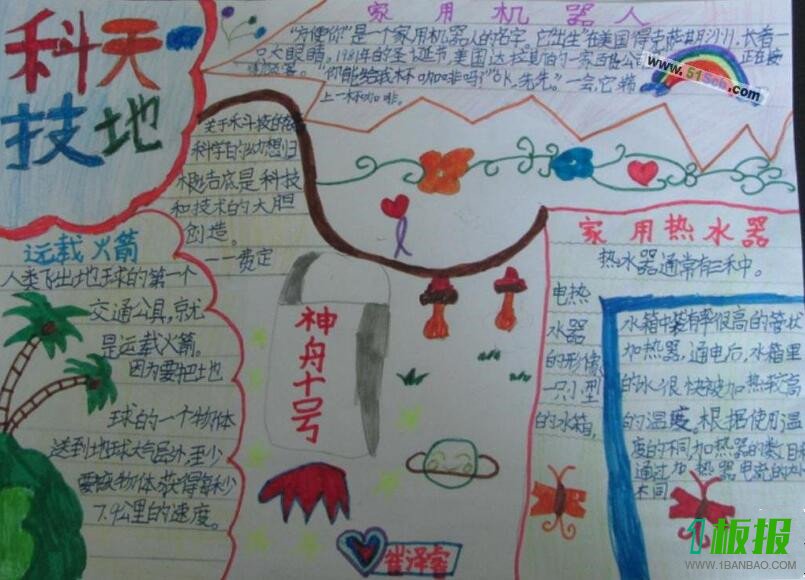 科天
技地
家用机器人
"方便你"是一个家用机器人的名字,它"出生"在美国得克萨斯州,长者一
只大眼睛。1981年的圣诞节,美国达拉斯的一家百货公司正在接
"你能给我杯咖啡吗?""Ok,先生。"一会,它端
上一杯咖啡。
www.51Scb.com
关于科技的
科学的幻想归
根结底是科技
和技术的大胆
创造。
——费定
运载火箭
人类飞出地球的第一个
交通公具,京尤
是运载火箭。
因为要把地
球的一个物体
送到地球大气层外,至少
要使物体获得每秒
7.9公里的速度。
神舟十号
崔泽睿
家用热水器
热水器通常有三种。
电热
水器
的形像
一只小型
的水箱,
水箱中装有率很高的管状
加热器,通电后,水箱里
的水很快被加热较高
的温度。根据使用温
度的不同加热器的数目
通过加热器电流的
不同
1板报
WWW.1BANBAO.COM